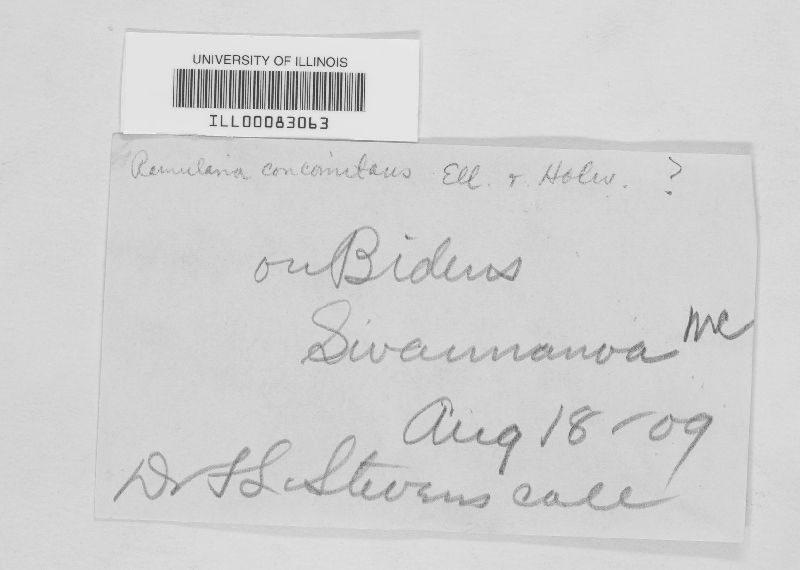 UNIVERSITY OF ILLINOIS
ILL00083063
Ramularia concomitans Ell. & Holw. ?
on Bidens
Swannanoa NC
Aug 18-09
Dr F L. Stevens coll